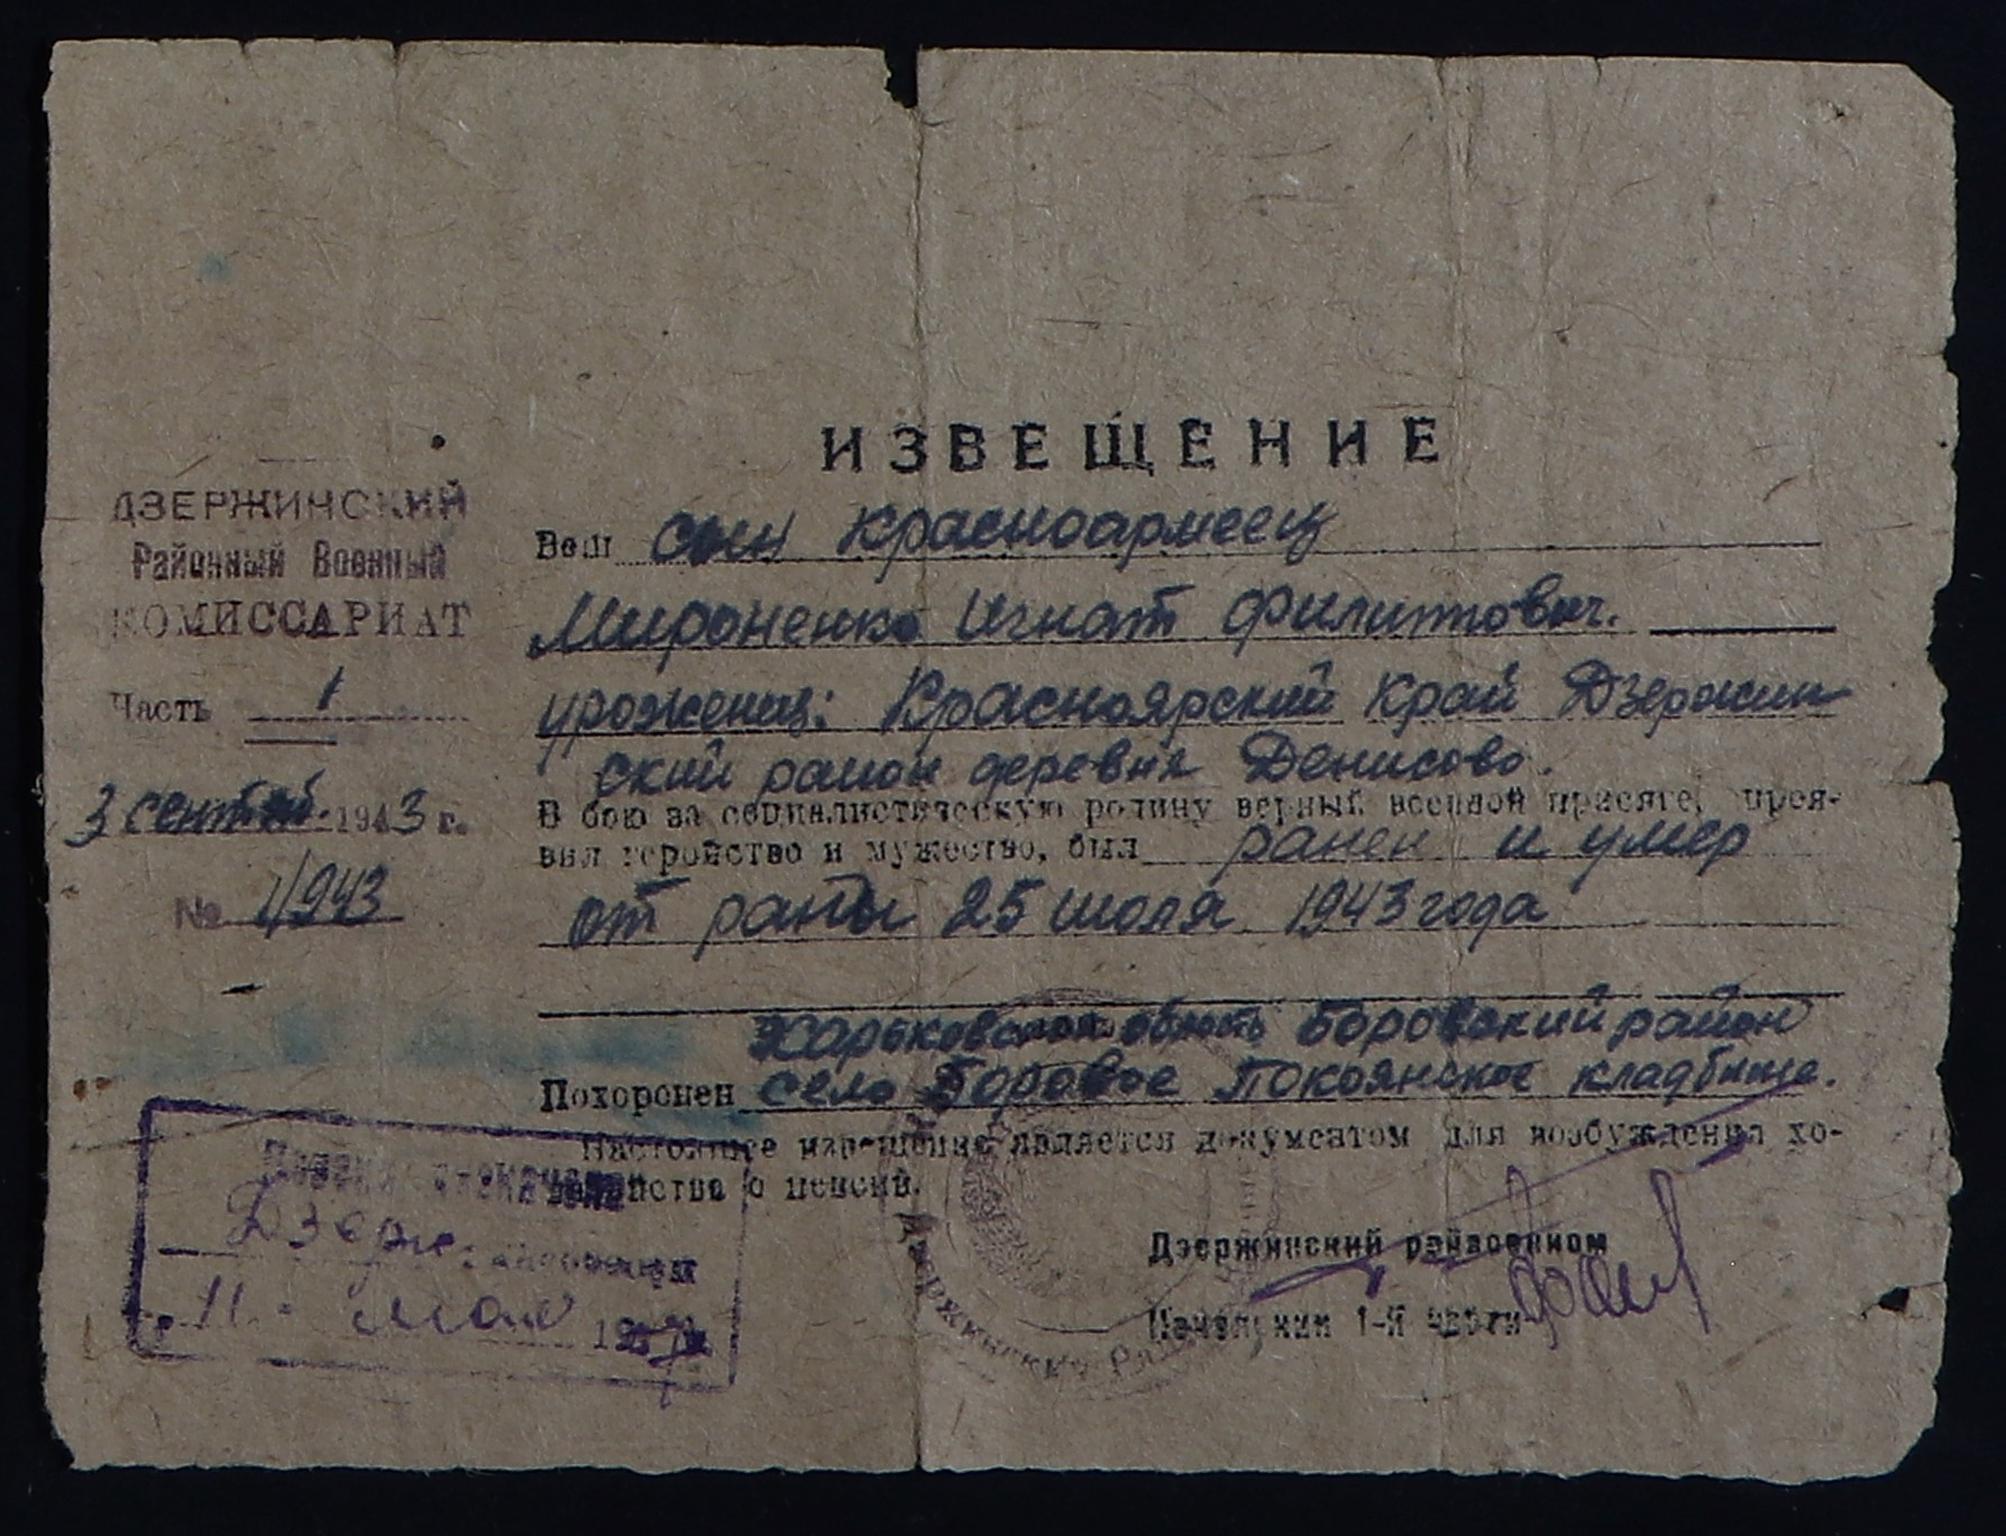 ИЗВЕЩЕНИЕ
ДЗЕРЖИНСКИЙ
Районный Военный
КОМИССАРИАТ
Часть 1
3 сентяб. 1943 г.
№ 1/943
Ваш сын красноармеец
Мироненко Игнат Филиппович.
уроженец: Красноярский край Дзержин
ский район деревня Денисово.
В бою за социалистическую родину верный военной присяге, проя-
вил геройство и мужество, был ранен и умер
от раны 25 июля 1943 года
Харьковская область Боровский район
Похоронен село Боровое Покоянское кладбище.
Настоящее извещение является документом для возбуждения хо-
датайства о пенсии.
Дзержинский райвоенком
Начальник 1-й части
Дзерж.
11 - мая 195
Дзержинский Рай